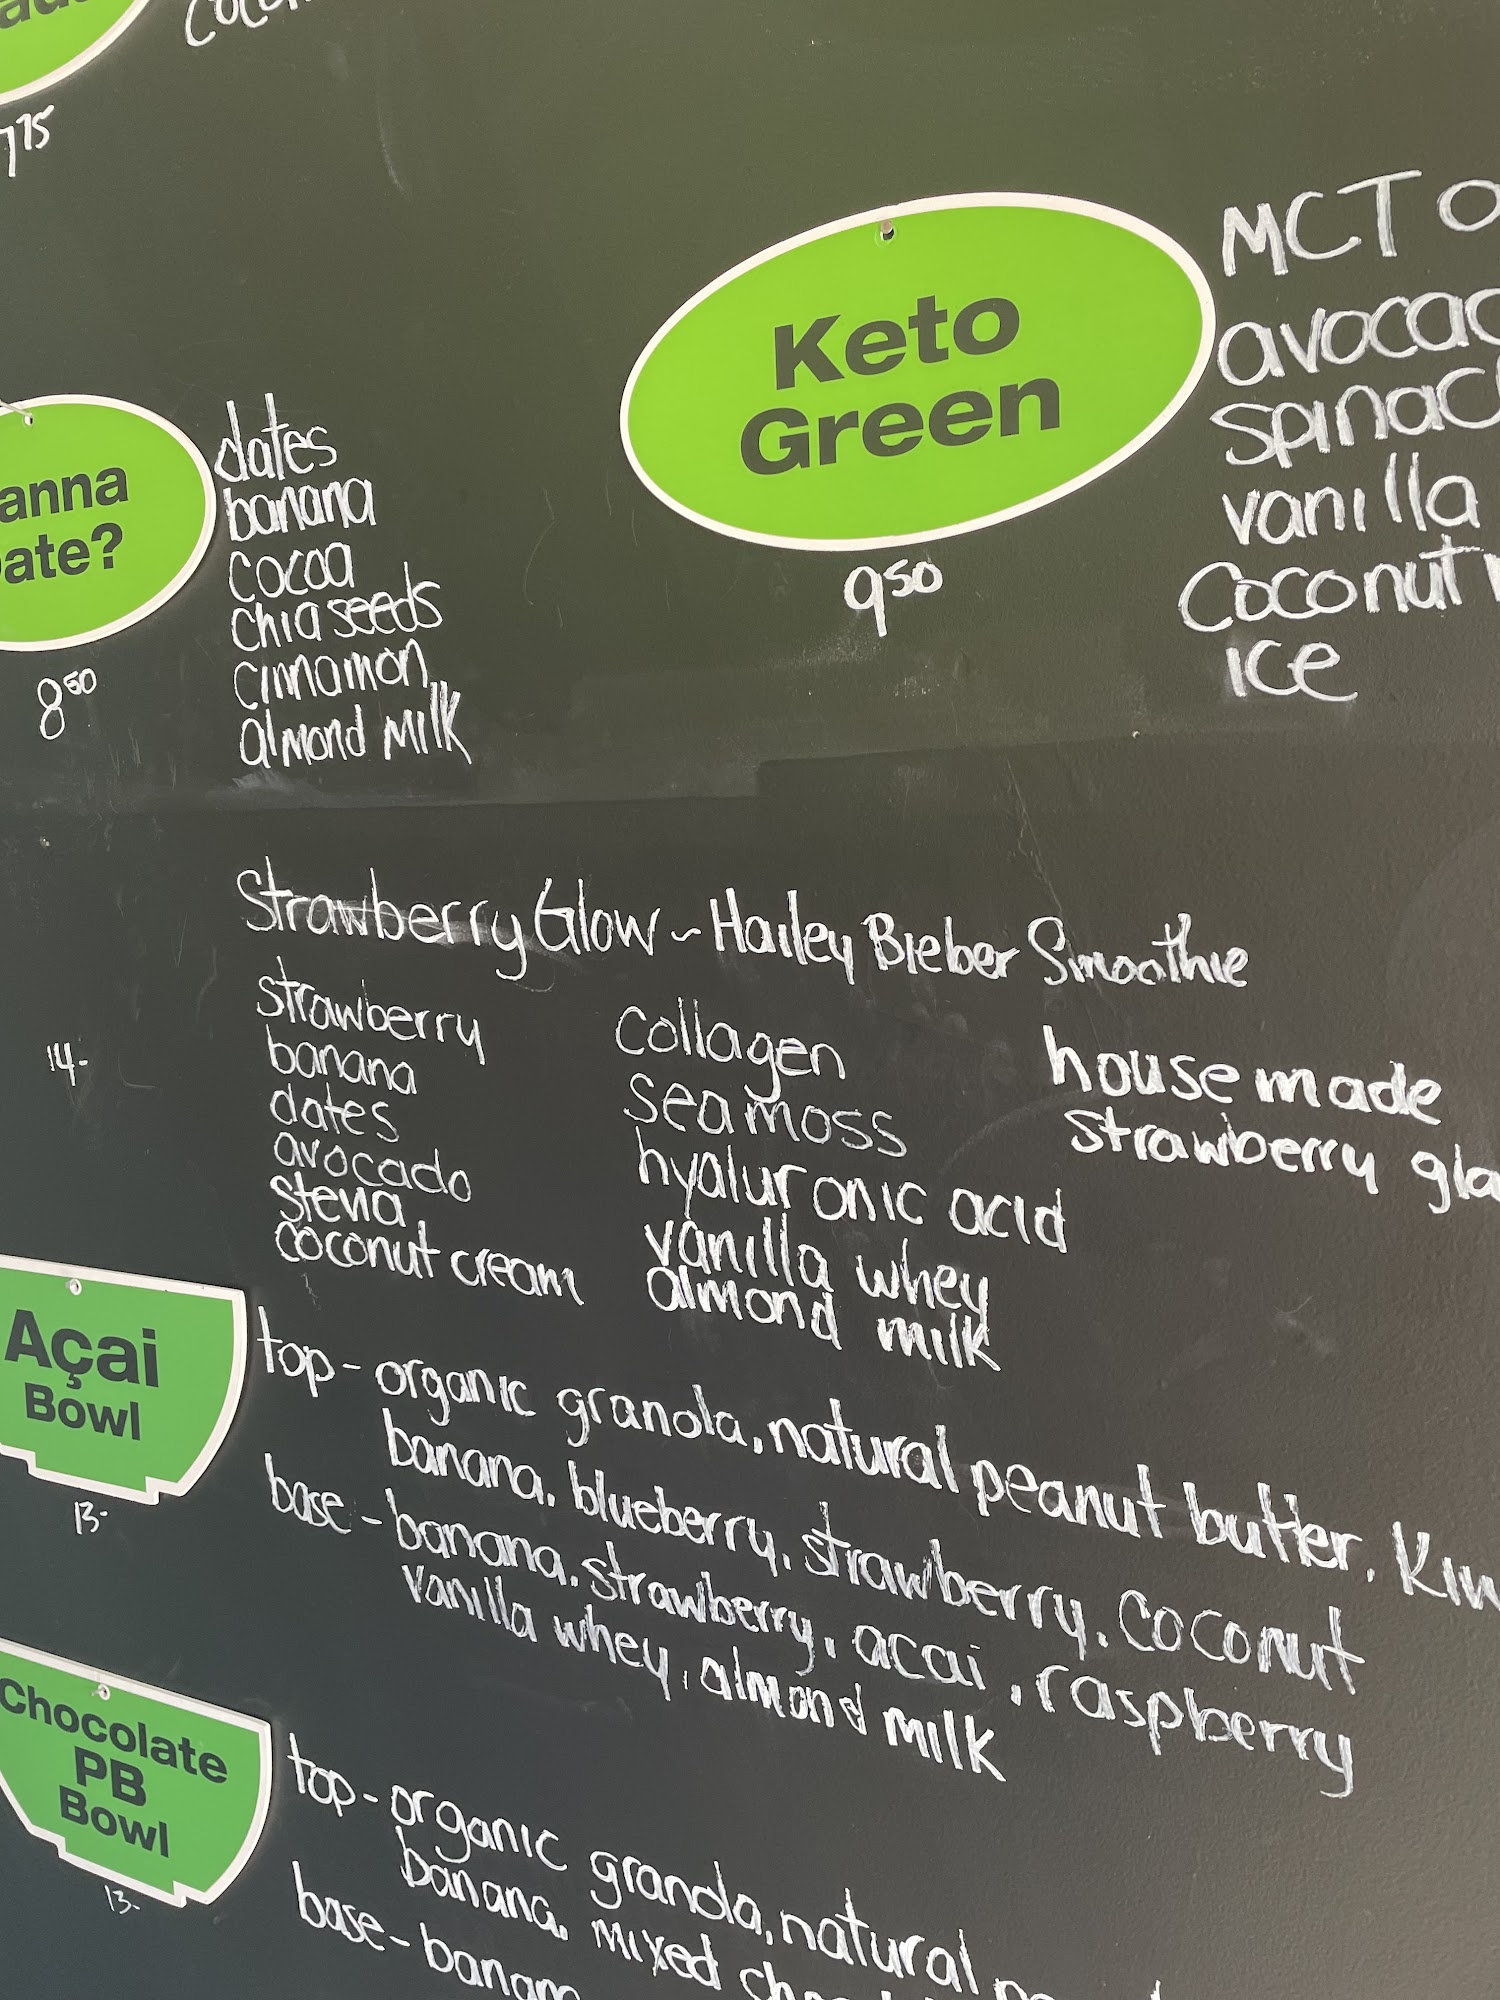 775
Keto
Green
950
MCT
spinac
vanilla
Coconut
ice
anna
ate?
850
dates
banana
cocoa
chia seeds
cinnamon
almond milk
Strawberry Glow ~ Hailey Bieber Smoothie
14-
strawberry
banana
dates
avocado
stevia
coconut cream
collagen
sea moss
hyaluronic acid
vanilla whey
almond milk
house made
strawberry gla
Açai
Bowl
13-
top - organic granola, natural peanut butter,
banana, blueberry, strawberry, coconut
base - banana, strawberry, acai, raspberry
vanilla whey, almond milk
Chocolate
PB
Bowl
13-
top - organic granola, natural
banana, mixed
base - banana